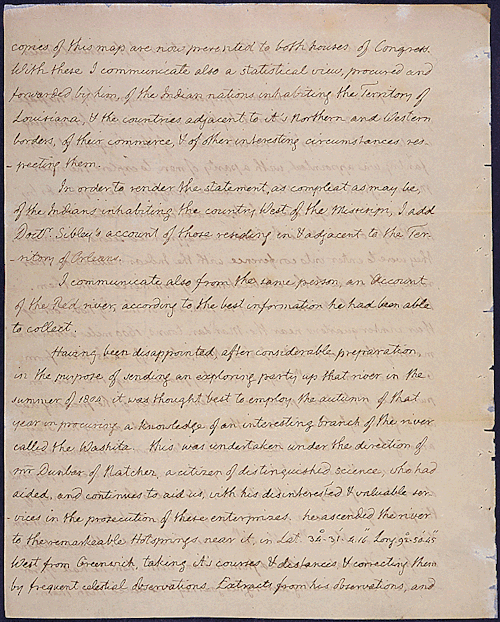 copies of this map are now presented to both houses of Congress.
With these I communicate also a statistical view, procured and
forwarded by him, of the Indian nations inhabiting the Territory of
Louisiana, & the countries adjacent to it's Northern and Western
borders, of their commerce, & of other interesting circumstances res-
-pecting them.
In order to render the statement, as compleat as may be,
of the Indians inhabiting the country West of the Missisipi, I add
Doctr. Sibley's account of those residing in & adjacent to the Ter-
-ritory of Orleans.
I communicate also from the same person, an Account
of the Red river, according to the best information he had been able
to collect.
Having been disappointed, after considerable preparation,
in the purpose of sending an exploring party up that river in the
summer of 1804. it was thought best to employ the autumn of that
year in procuring a knowledge of an interesting branch of the river
called the Washita. this was undertaken under the direction of
mr Dunbar of Natchez, a citizen of distinguished science, who had
aided, and continues to aid us, with his disinterested & valuable ser-
-vices in the prosecution of these enterprizes. he ascended the river
to the remarkeable Hotsprings near it, in Lat. 34-31-4.16 Long. 92-50-45"
West from Greenwich, taking it's courses & distances, & correcting them
by frequent celestial observations. Extracts from his observations, and